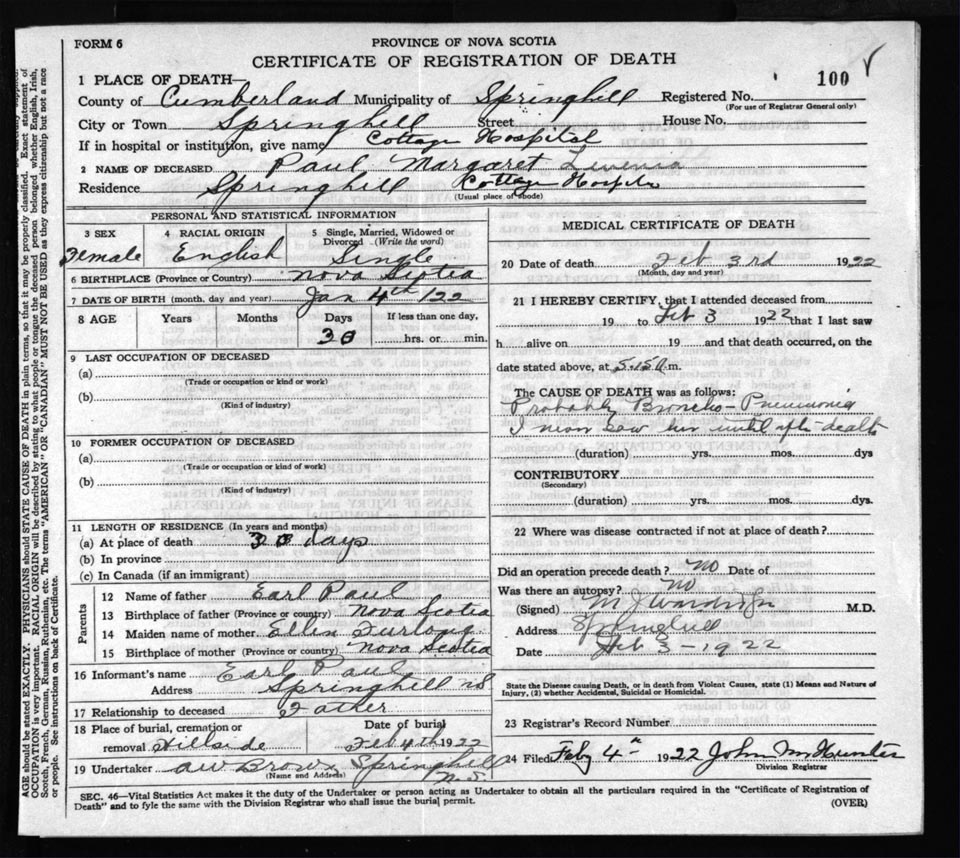 FORM 6
PROVINCE OF NOVA SCOTIA
CERTIFICATE OF REGISTRATION OF DEATH
100 ✓
1 PLACE OF DEATH—
County of Cumberland Municipality of Springhill Registered No.
(For use of Registrar General only)
City or Town Springhill Street House No.
If in hospital or institution, give name Cottage Hospital
2 NAME OF DECEASED Paul Margaret
Residence Springhill Cottage Hospital
(Usual place of abode)
PERSONAL AND STATISTICAL INFORMATION
3 SEX 4 RACIAL ORIGIN 5 Single, Married, Widowed or
Divorced (Write the word)
Female English Single
6 BIRTHPLACE (Province or Country) Nova Scotia
7 DATE OF BIRTH (month, day and year) Jan 4th /22
8 AGE Years Months Days If less than one day,
30 hrs. or min.
9 LAST OCCUPATION OF DECEASED
(a)
(Trade or occupation or kind or work)
(b)
(Kind of industry)
10 FORMER OCCUPATION OF DECEASED
(a)
(Trade or occupation or kind of work)
(b)
(Kind of industry)
11 LENGTH OF RESIDENCE (In years and months)
(a) At place of death 30 days
(b) In province
(c) In Canada (if an immigrant)
Parents
12 Name of father Earl Paul
13 Birthplace of father (Province or country) Nova Scotia
14 Maiden name of mother Ellen Furlong
15 Birthplace of mother (Province or country) Nova Scotia
16 Informant's name Earl Paul
Address Springhill NS
17 Relationship to deceased Father
18 Place of burial, cremation or Date of burial
removal Hillside Feb 4th 1922
19 Undertaker AW Brown Springhill
(Name and Address) N.S.
MEDICAL CERTIFICATE OF DEATH
20 Date of death Feb 3rd 1922
(Month, day and year)
21 I HEREBY CERTIFY, that I attended deceased from
19 to Feb 3 1922 that I last saw
h alive on 19 and that death occurred, on the
date stated above, at 5.15 a.m.
The CAUSE OF DEATH was as follows:
Probably Broncho-Pneumonia
I never saw her until after death
(duration) yrs. mos. dys
CONTRIBUTORY
(Secondary)
(duration) yrs. mos. dys.
22 Where was disease contracted if not at place of death?
Did an operation precede death? No Date of
Was there an autopsy? No
(Signed) M.D.
Address Springhill
Date Feb 3 - 1922
State the Disease causing Death, or in death from Violent Causes, state (1) Means and Nature of
Injury, (2) whether Accidental, Suicidal or Homicidal.
23 Registrar's Record Number
24 Filed Feby 4th 1922 John M Hunter
Division Registrar
SEC. 46—Vital Statistics Act makes it the duty of the Undertaker or person acting as Undertaker to obtain all the particulars required in the "Certificate of Registration of
Death" and to fyle the same with the Division Registrar who shall issue the burial permit.
(OVER)
AGE should be stated EXACTLY. PHYSICIANS should STATE CAUSE OF DEATH in plain terms, so that it may be properly classified. Exact statement of
OCCUPATION is very important. RACIAL ORIGIN will be described by stating to what people or tongue the deceased person belonged whether English, Irish,
Scotch, French, German, Russian, Ruthenian, etc. The terms "AMERICAN" OR "CANADIAN" MUST NOT BE USED as they express citizenship but not a race
or people. See instructions on back of Certificate.